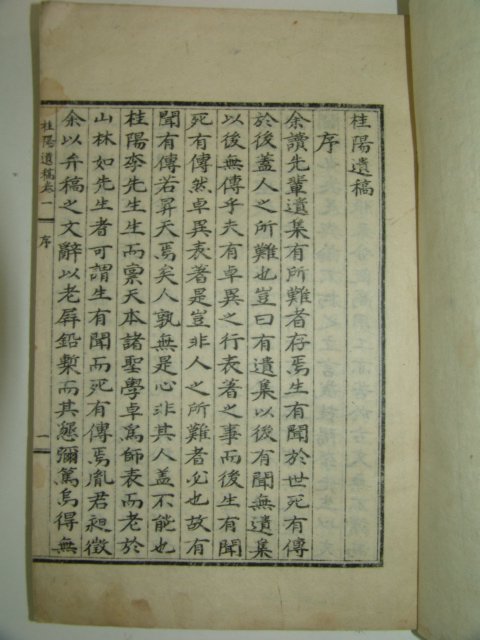 桂陽遺稿
序
余讀先輩遺集有所難者存焉生有聞於世死有傳
於後蓋人之所難也豈曰有遺集以後有聞無遺集
以後無傳乎夫有卓異之行表著之事而後生有聞
死有傳然卓異表著是豈非人之所難者必也故有
聞有傳若昇天焉矣人孰無是心非其人盖不能也
桂陽李先生生而稟天本諸聖學卓爲師表而老於
山林如先生者可謂生有聞而死有傳焉胤君昶徵
余以弁稿之文辭以老屛鉛槧而其懇彌篤烏得無
桂陽遺稿卷一
序
一